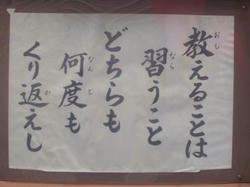 教えることは
習うこと
どちらも
何度も
くり返えし